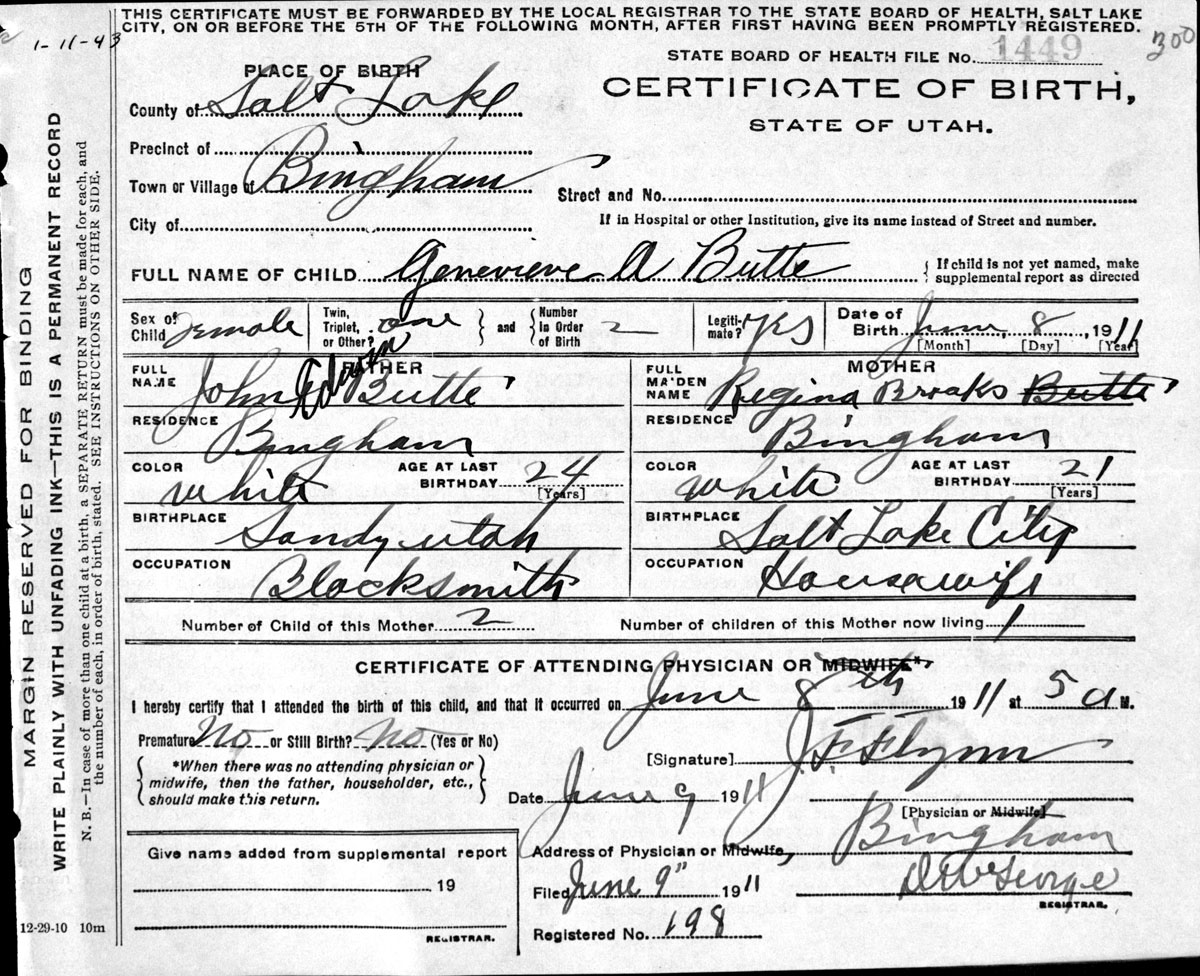 THIS CERTIFICATE MUST BE FORWARDED BY THE LOCAL REGISTRAR TO THE STATE BOARD OF HEALTH, SALT LAKE
CITY, ON OR BEFORE THE 5TH OF THE FOLLOWING MONTH, AFTER FIRST HAVING BEEN PROMPTLY REGISTERED.
1-11-43
300
STATE BOARD OF HEALTH FILE No. 1449
CERTIFICATE OF BIRTH,
STATE OF UTAH.
PLACE OF BIRTH
County of Salt Lake
Precinct of
Town or Village of Bingham
Street and No.
City of
If in Hospital or other Institution, give its name instead of Street and number.
FULL NAME OF CHILD Genevieve A Butte
{ If child is not yet named, make
supplemental report as directed
Sex of Child Female
Twin, Triplet, or Other? one } and { Number In Order of Birth 2
Legiti-mate? Yes
Date of Birth June 8 1911
[Month] [Day] [Year]
FATHER
FULL NAME John Edwin Butte
RESIDENCE Bingham
COLOR White AGE AT LAST BIRTHDAY 24 [Years]
BIRTHPLACE Sandy Utah
OCCUPATION Blacksmith
MOTHER
FULL MAIDEN NAME Regina Brooks Butte
RESIDENCE Bingham
COLOR White AGE AT LAST BIRTHDAY 21 [Years]
BIRTHPLACE Salt Lake City
OCCUPATION Housewife
Number of Child of this Mother 2 Number of children of this Mother now living 1
CERTIFICATE OF ATTENDING PHYSICIAN OR MIDWIFE*
I hereby certify that I attended the birth of this child, and that it occurred on June 8th 1911 at 5 a M.
Premature No or Still Birth? No (Yes or No)
{ *When there was no attending physician or
midwife, then the father, householder, etc.,
should make this return. }
[Signature] J F Flynn
Date June 9 1911
[Physician or Midwife]
Address of Physician or Midwife, Bingham
Give name added from supplemental report
19
REGISTRAR.
Filed June 9" 1911
REGISTRAR.
Registered No. 198
12-29-10 10m
MARGIN RESERVED FOR BINDING
WRITE PLAINLY WITH UNFADING INK—THIS IS A PERMANENT RECORD
N. B.—In case of more than one child at a birth, a SEPARATE RETURN must be made for each, and
the number of each, in order of birth, stated. SEE INSTRUCTIONS ON OTHER SIDE.